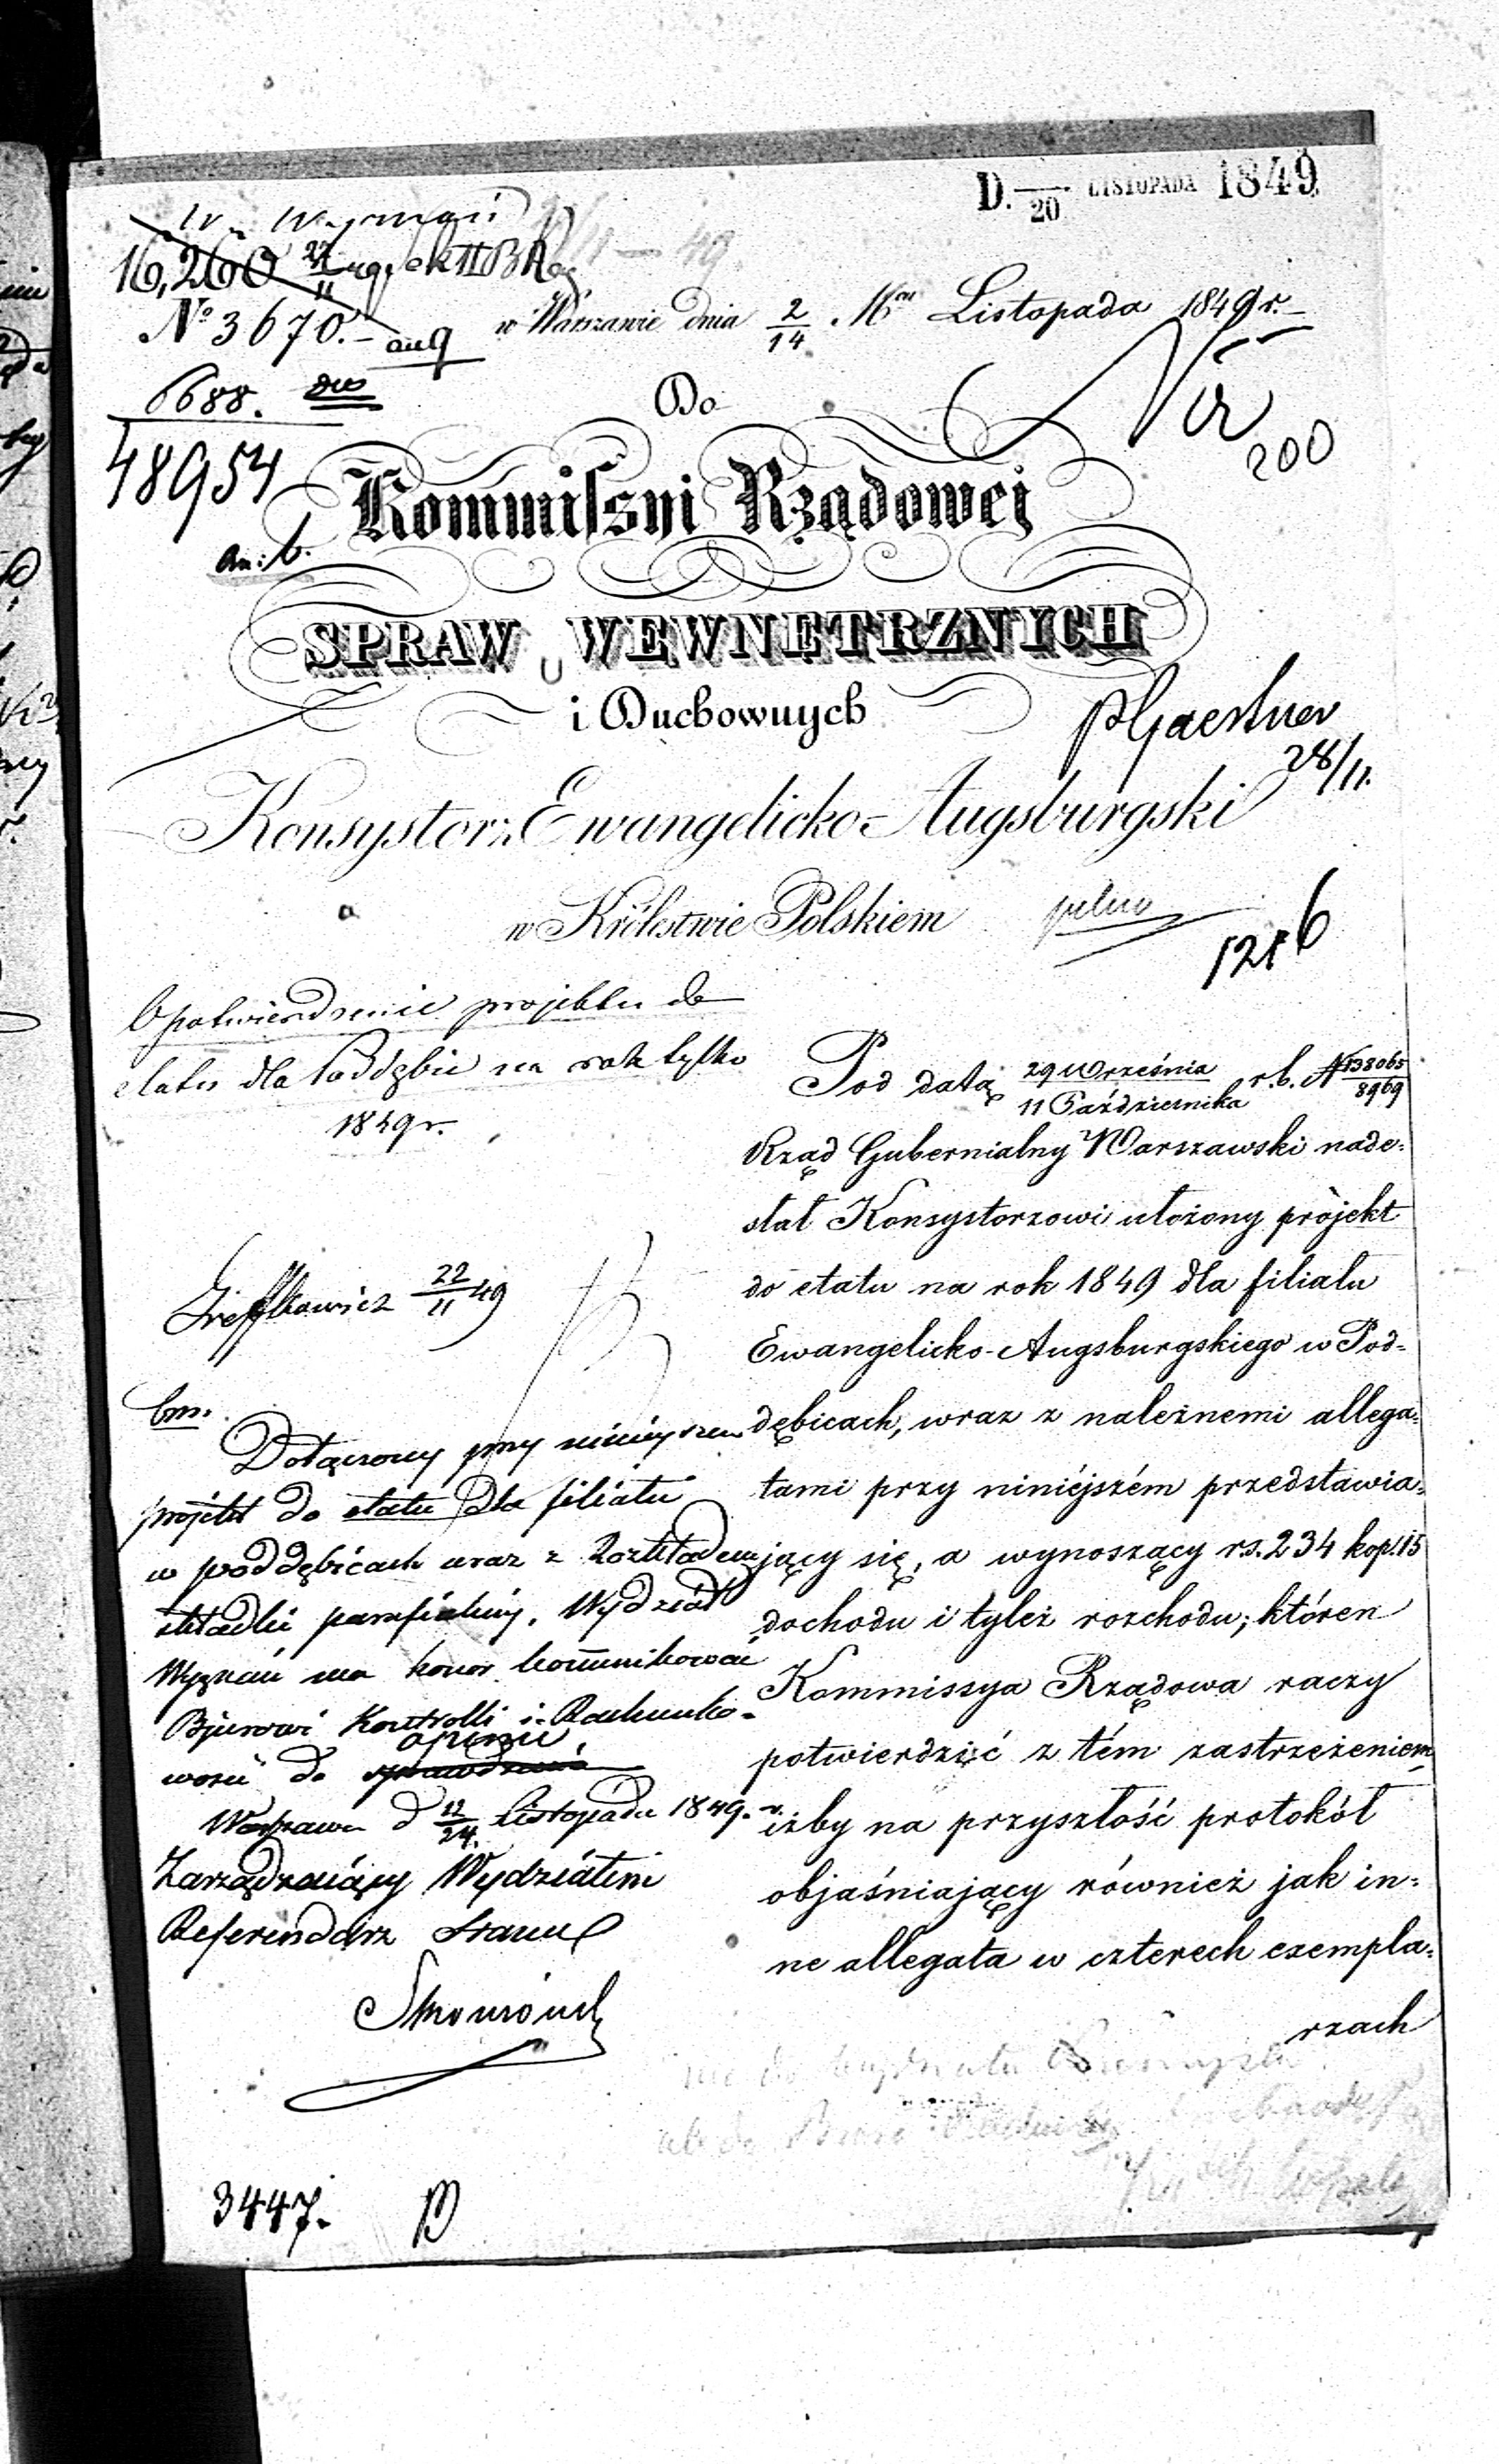 D. 20 LISTOPADA 1849
16,260
№ 3670.
w Warszawie dnia 2/14 Mca Listopada 1849 r.
6688.
Do
200
48954
Kommissyi Rządowej
SPRAW WEWNĘTRZNYCH
i Duchownych
pGaertner
28/11.
Konsystorz Ewangelicko-Augsburgski
w Królestwie Polskiem
1216
O potwierdzenie projektu do
etatu dla Poddębic na rok tylko
1849 r.
Pod datą 29 Września / 11 Października r.b. № 138065/8969
Rząd Gubernialny Warszawski nade-
słał Konsystorzowi ułożony projekt
do etatu na rok 1849 dla filiału
Ewangelicko-Augsburgskiego w Pod-
dębicach, wraz z należnemi allega-
tami przy niniéjszém przedstawia-
jący się, a wynoszący rs. 234 kop. 15
dochodu i tyleż rozchodu; któren
Kommissya Rządowa raczy
potwierdzić z tém zastrzeżeniem
iżby na przyszłość protokół
objaśniający również jak in-
ne allegata w czterech exempla-
rzach
22/11 49
Dołączony przy niniejszem
projekt do etatu dla filiału
w Poddębicach wraz z Rozkładem
składki parafialnéj, Wydział
Wyznań ma honor kommunikować
Bjurowi Kontrolli i Rachunko-
wości do opinii
Warszawa d 12/24 Listopada 1849. r.
Zarządzaiący Wydziałem
Referendarz Stanu
3447.